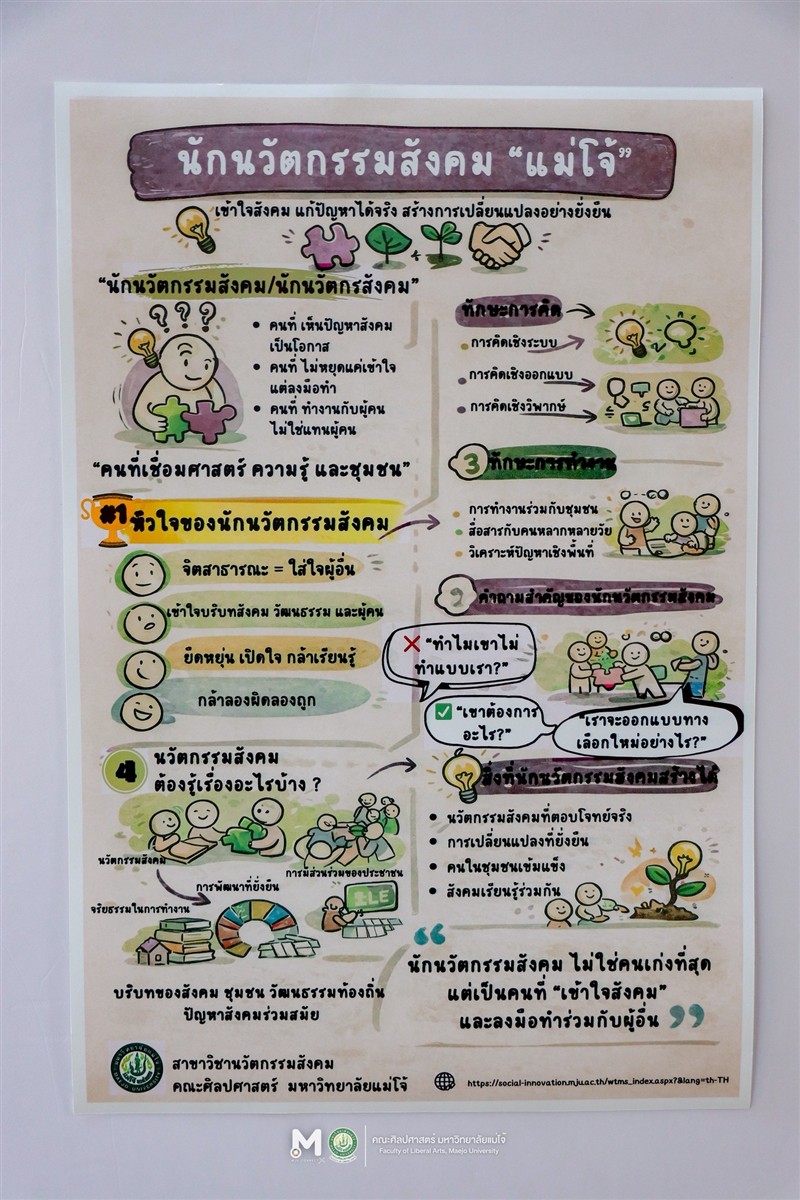 นักนวัตกรรมสังคม “แม่โจ้”
เข้าใจสังคม แก้ปัญหาได้จริง สร้างการเปลี่ยนแปลงอย่างยั่งยืน
“นักนวัตกรรมสังคม/นักนวัตกรสังคม”
? ? ?
• คนที่ เห็นปัญหาสังคม
เป็นโอกาส
• คนที่ ไม่หยุดแค่เข้าใจ
แต่ลงมือทำ
• คนที่ ทำงานกับผู้คน
ไม่ใช่แทนผู้คน
“คนที่เชื่อมศาสตร์ ความรู้ และชุมชน”
#1 หัวใจของนักนวัตกรรมสังคม
จิตสาธารณะ = ใส่ใจผู้อื่น
เข้าใจบริบทสังคม วัฒนธรรม และผู้คน
ยืดหยุ่น เปิดใจ กล้าเรียนรู้
กล้าลองผิดลองถูก
4 นวัตกรรมสังคม
ต้องรู้เรื่องอะไรบ้าง ?
นวัตกรรมสังคม
การมีส่วนร่วมของประชาชน
การพัฒนาที่ยั่งยืน
จริยธรรมในการทำงาน
บริบทของสังคม ชุมชน วัฒนธรรมท้องถิ่น
ปัญหาสังคมร่วมสมัย
ทักษะการคิด
• การคิดเชิงระบบ
• การคิดเชิงออกแบบ
• การคิดเชิงวิพากษ์
3 ทักษะการทำงาน
• การทำงานร่วมกับชุมชน
• สื่อสารกับคนหลากหลายวัย
• วิเคราะห์ปัญหาเชิงพื้นที่
คำถามสำคัญของนักนวัตกรรมสังคม
❌ “ทำไมเขาไม่
ทำแบบเรา?”
✅ “เขาต้องการ
อะไร?”
“เราจะออกแบบทาง
เลือกใหม่อย่างไร?”
สิ่งที่นักนวัตกรรมสังคมสร้างได้
• นวัตกรรมสังคมที่ตอบโจทย์จริง
• การเปลี่ยนแปลงที่ยั่งยืน
• คนในชุมชนเข้มแข็ง
• สังคมเรียนรู้ร่วมกัน
“ นักนวัตกรรมสังคม ไม่ใช่คนเก่งที่สุด
แต่เป็นคนที่ “เข้าใจสังคม”
และลงมือทำร่วมกับผู้อื่น ”
สาขาวิชานวัตกรรมสังคม
คณะศิลปศาสตร์ มหาวิทยาลัยแม่โจ้
https://social-innovation.mju.ac.th/wtms_index.aspx?&lang=th-TH
M
คณะศิลปศาสตร์ มหาวิทยาลัยแม่โจ้
Faculty of Liberal Arts, Maejo University